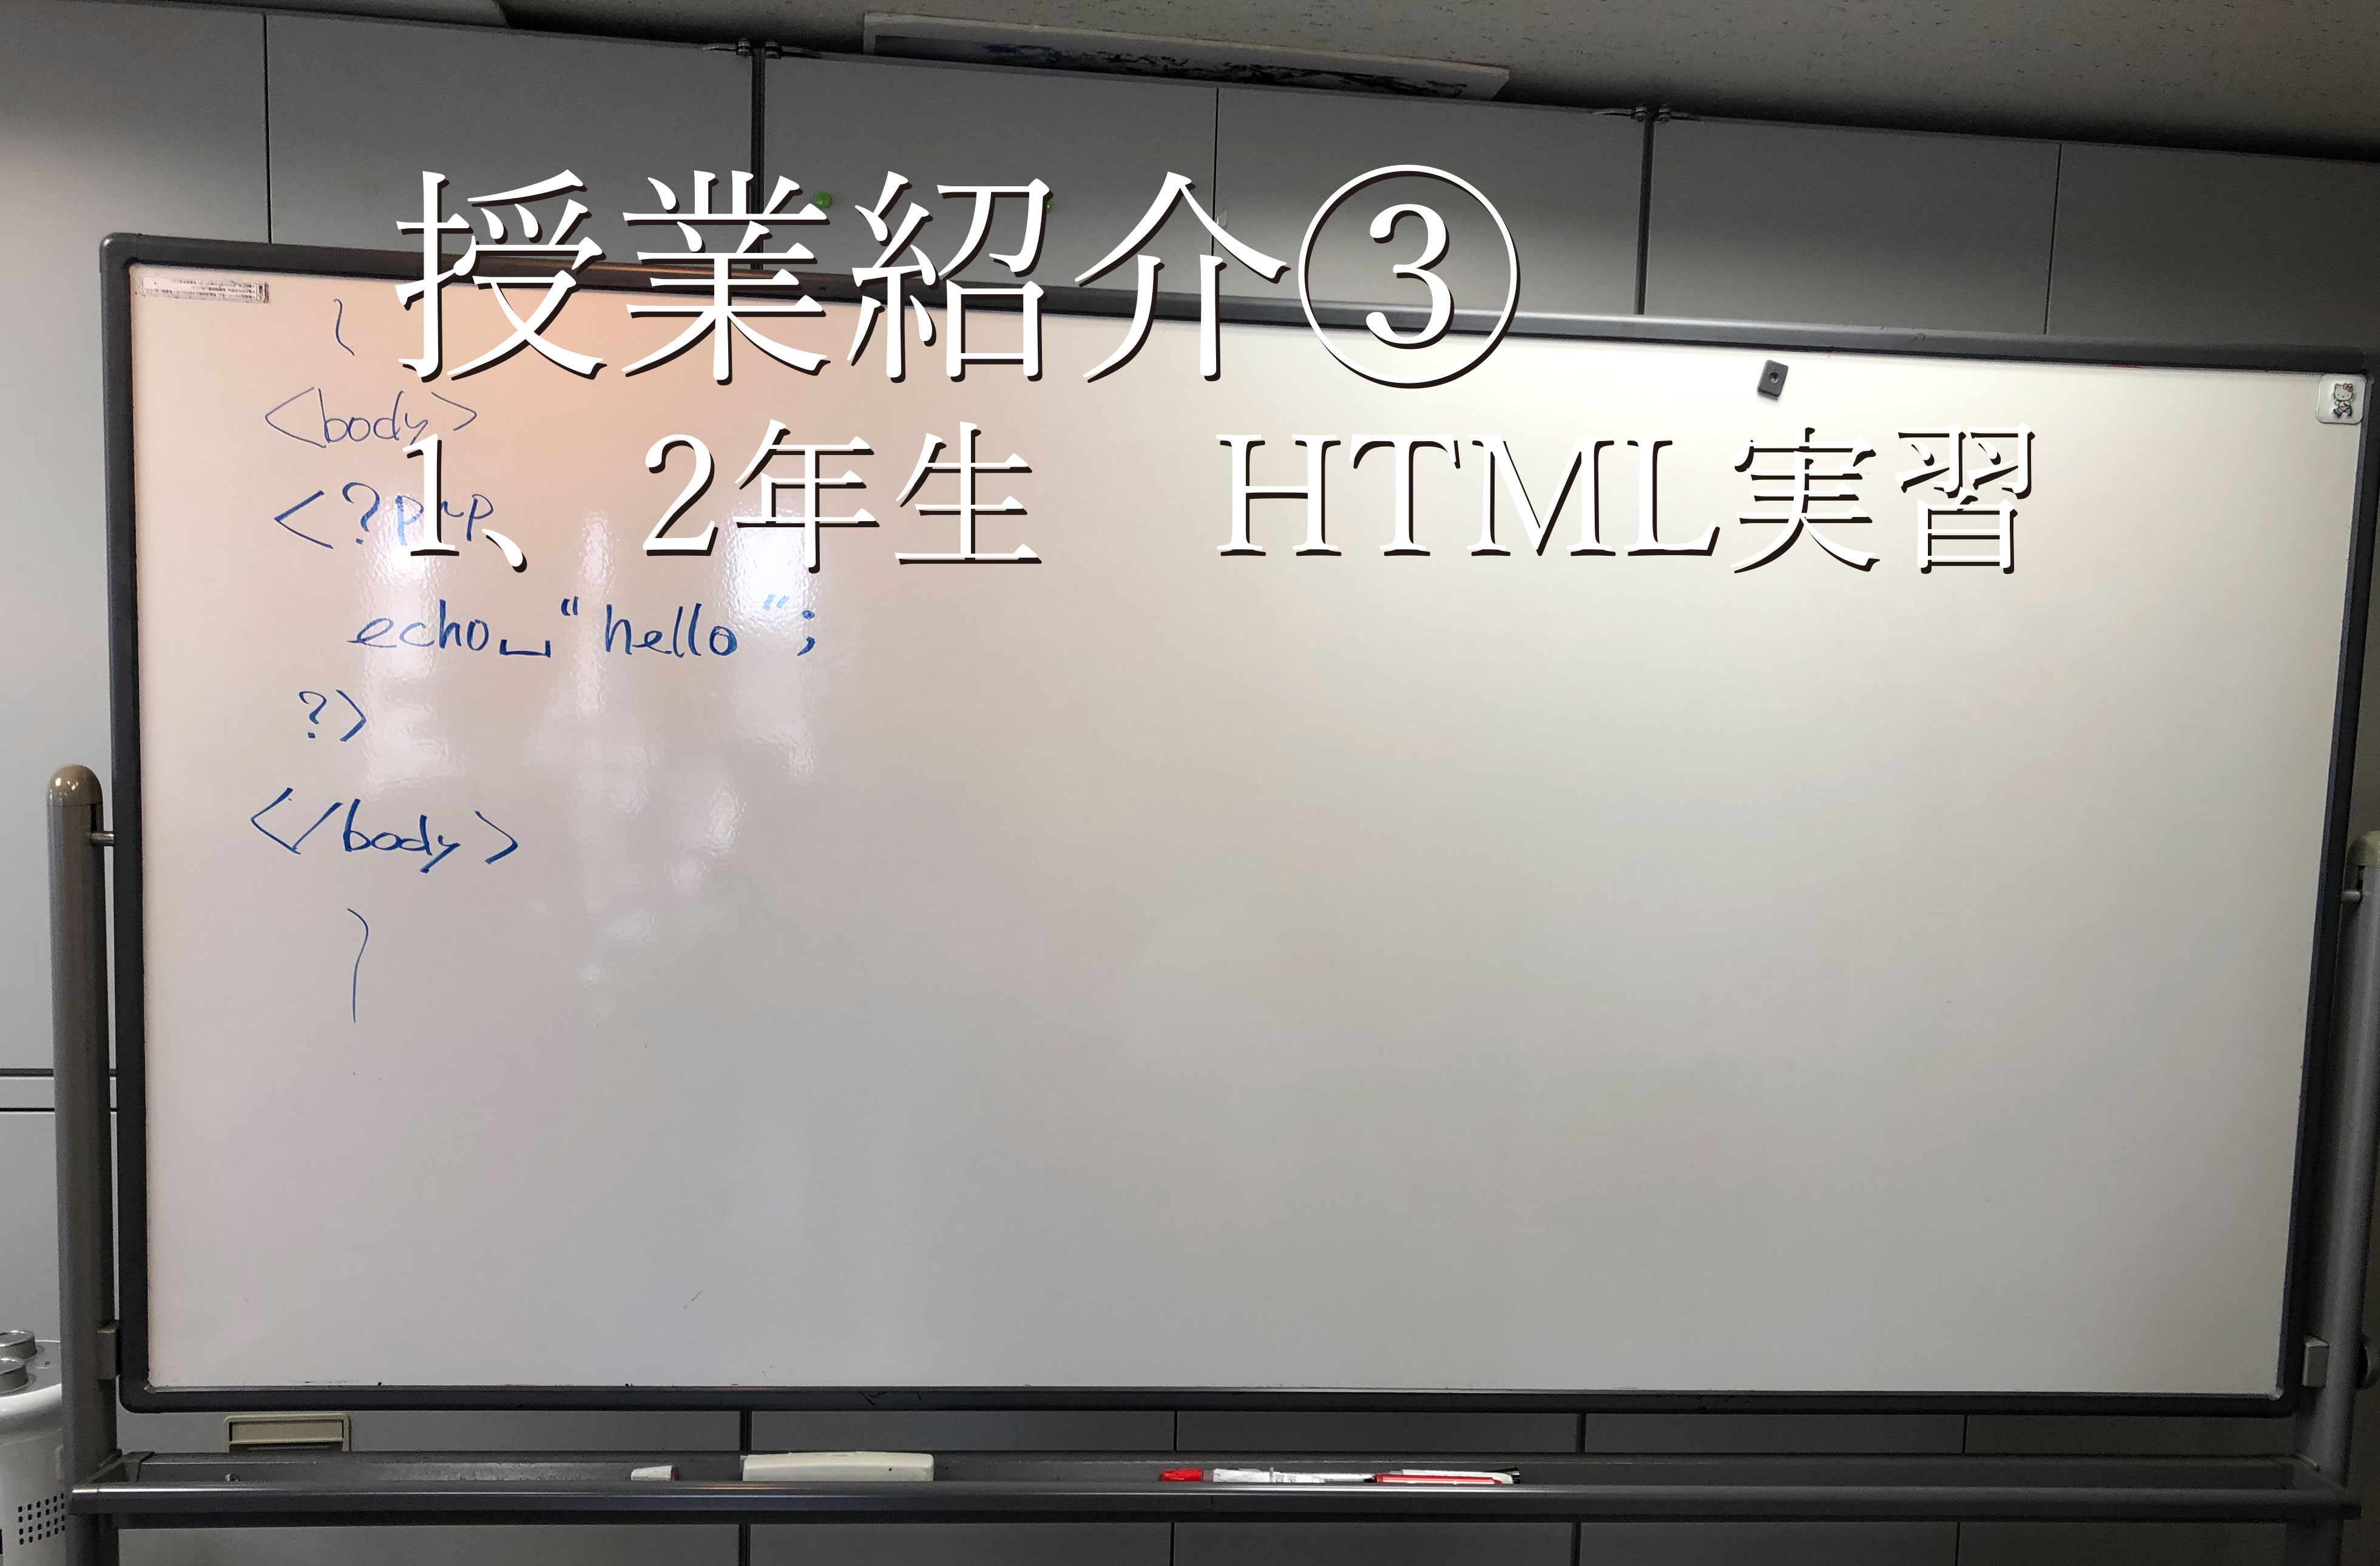 授業紹介③
1、2年生　HTML実習
<body>
<?php
echo␣"hello";
?>
</body>